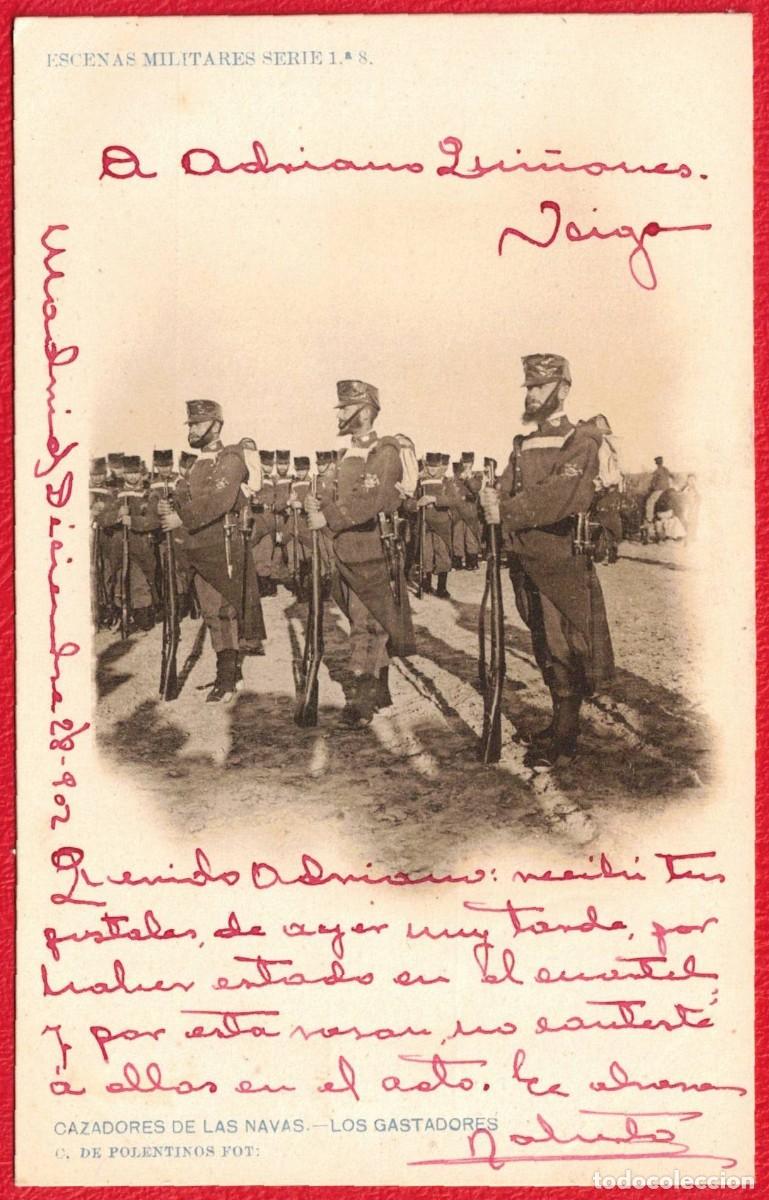 ESCENAS MILITARES SERIE 1.ª 8.
A Adriano Quiñones.
Veiga
Madrid y Diciembre 28-902
Querido Adriano: recibí tus
postales, de ayer muy tarde, por
haber estado en el cuartel
y por esta rason, no contesté
á ellas en el acto. Te abraza
CAZADORES DE LAS NAVAS.—LOS GASTADORES
C. DE POLENTINOS FOT:
todocoleccion